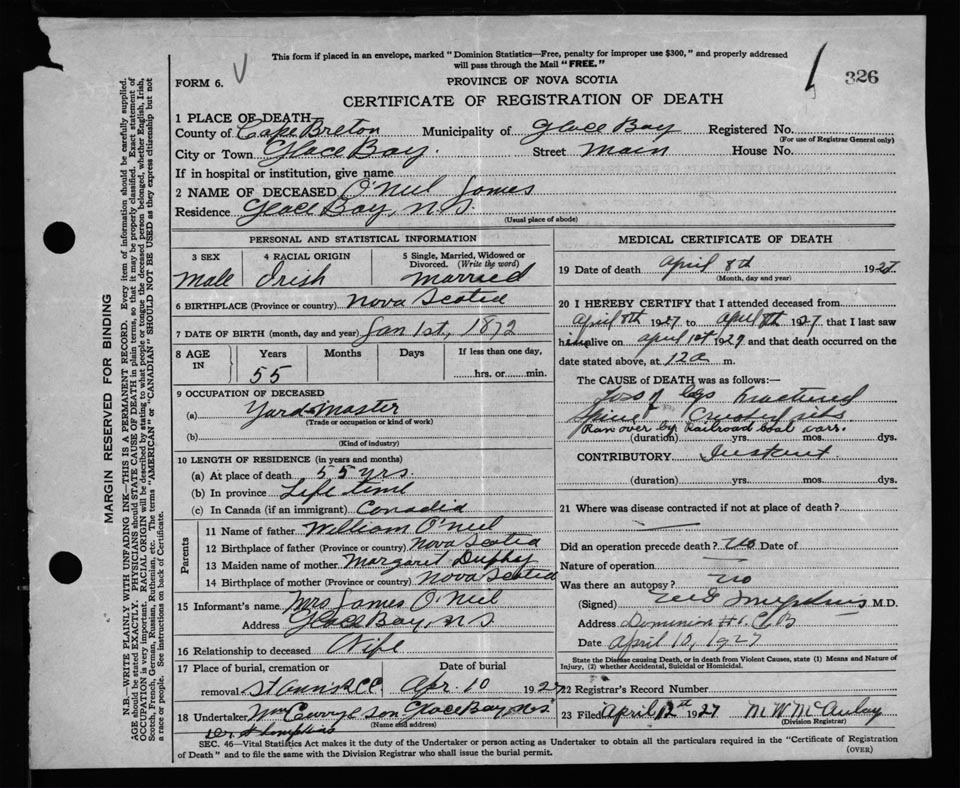 This form if placed in an envelope, marked "Dominion Statistics—Free, penalty for improper use $300," and properly addressed
will pass through the Mail "FREE."
326
FORM 6.
PROVINCE OF NOVA SCOTIA
CERTIFICATE OF REGISTRATION OF DEATH
1 PLACE OF DEATH
County of Cape Breton Municipality of Glace Bay Registered No.
(For use of Registrar General only)
City or Town Glace Bay. Street Main House No.
If in hospital or institution, give name
2 NAME OF DECEASED O'Neil James
Residence Glace Bay, N.S.
(Usual place of abode)
PERSONAL AND STATISTICAL INFORMATION
3 SEX 4 RACIAL ORIGIN 5 Single, Married, Widowed or
Divorced. (Write the word)
Male Irish Married
6 BIRTHPLACE (Province or country) Nova Scotia
7 DATE OF BIRTH (month, day and year) Jan 1st, 1872
8 AGE IN Years Months Days If less than one day,
55 hrs. or min.
9 OCCUPATION OF DECEASED
(a) Yard Master
(Trade or occupation or kind of work)
(b)
(Kind of industry)
10 LENGTH OF RESIDENCE (in years and months)
(a) At place of death 55 yrs.
(b) In province Life time
(c) In Canada (if an immigrant) Canadia
Parents
11 Name of father William O'Neil
12 Birthplace of father (Province or country) Nova Scotia
13 Maiden name of mother Margaret Duffy
14 Birthplace of mother (Province or country) Nova Scotia
15 Informant's name Mrs James O'Neil
Address Glace Bay, N.S
16 Relationship to deceased Wife
17 Place of burial, cremation or Date of burial
removal St Ann's R.C.C. Apr. 10 1927
18 Undertaker Glace Bay, N.S
(Name and address)
MEDICAL CERTIFICATE OF DEATH
19 Date of death April 8th 1927.
(Month, day and year)
20 I HEREBY CERTIFY that I attended deceased from
April 8th 1927 to April 8th 1927 that I last saw
him alive on April 1st 1927 and that death occurred on the
date stated above, at 12 a m.
The CAUSE OF DEATH was as follows:—
Loss of legs Fractured
Spine Crushed ribs
Ran over by Railroad coal cars.
(duration) yrs. mos. dys.
CONTRIBUTORY Instant
(duration) yrs. mos. dys.
21 Where was disease contracted if not at place of death?
Did an operation precede death? No Date of
Nature of operation
Was there an autopsy? no
(Signed) Tompkins M.D.
Address Dominion #1. C B
Date April 10, 1927
State the Disease causing Death, or in death from Violent Causes, state (1) Means and Nature of
Injury, (2) whether Accidental, Suicidal or Homicidal.
22 Registrar's Record Number
23 Filed April 12th 1927 M W McAulay
(Division Registrar)
SEC. 46—Vital Statistics Act makes it the duty of the Undertaker or person acting as Undertaker to obtain all the particulars required in the "Certificate of Registration
of Death" and to file the same with the Division Registrar who shall issue the burial permit.
(OVER)
MARGIN RESERVED FOR BINDING
N.B.—WRITE PLAINLY WITH UNFADING INK—THIS IS A PERMANENT RECORD. Every item of information should be carefully supplied.
AGE should be stated EXACTLY. PHYSICIANS should STATE CAUSE OF DEATH in plain terms, so that it may be properly classified. Exact statement of
OCCUPATION is very important. RACIAL ORIGIN will be described by stating to what people or tongue the deceased person belonged, whether English, Irish,
Scotch, French, German, Russian, Ruthenian, etc. The terms "AMERICAN" or "CANADIAN" SHOULD NOT BE USED as they express citizenship but not
a race or people. See instructions on back of Certificate.